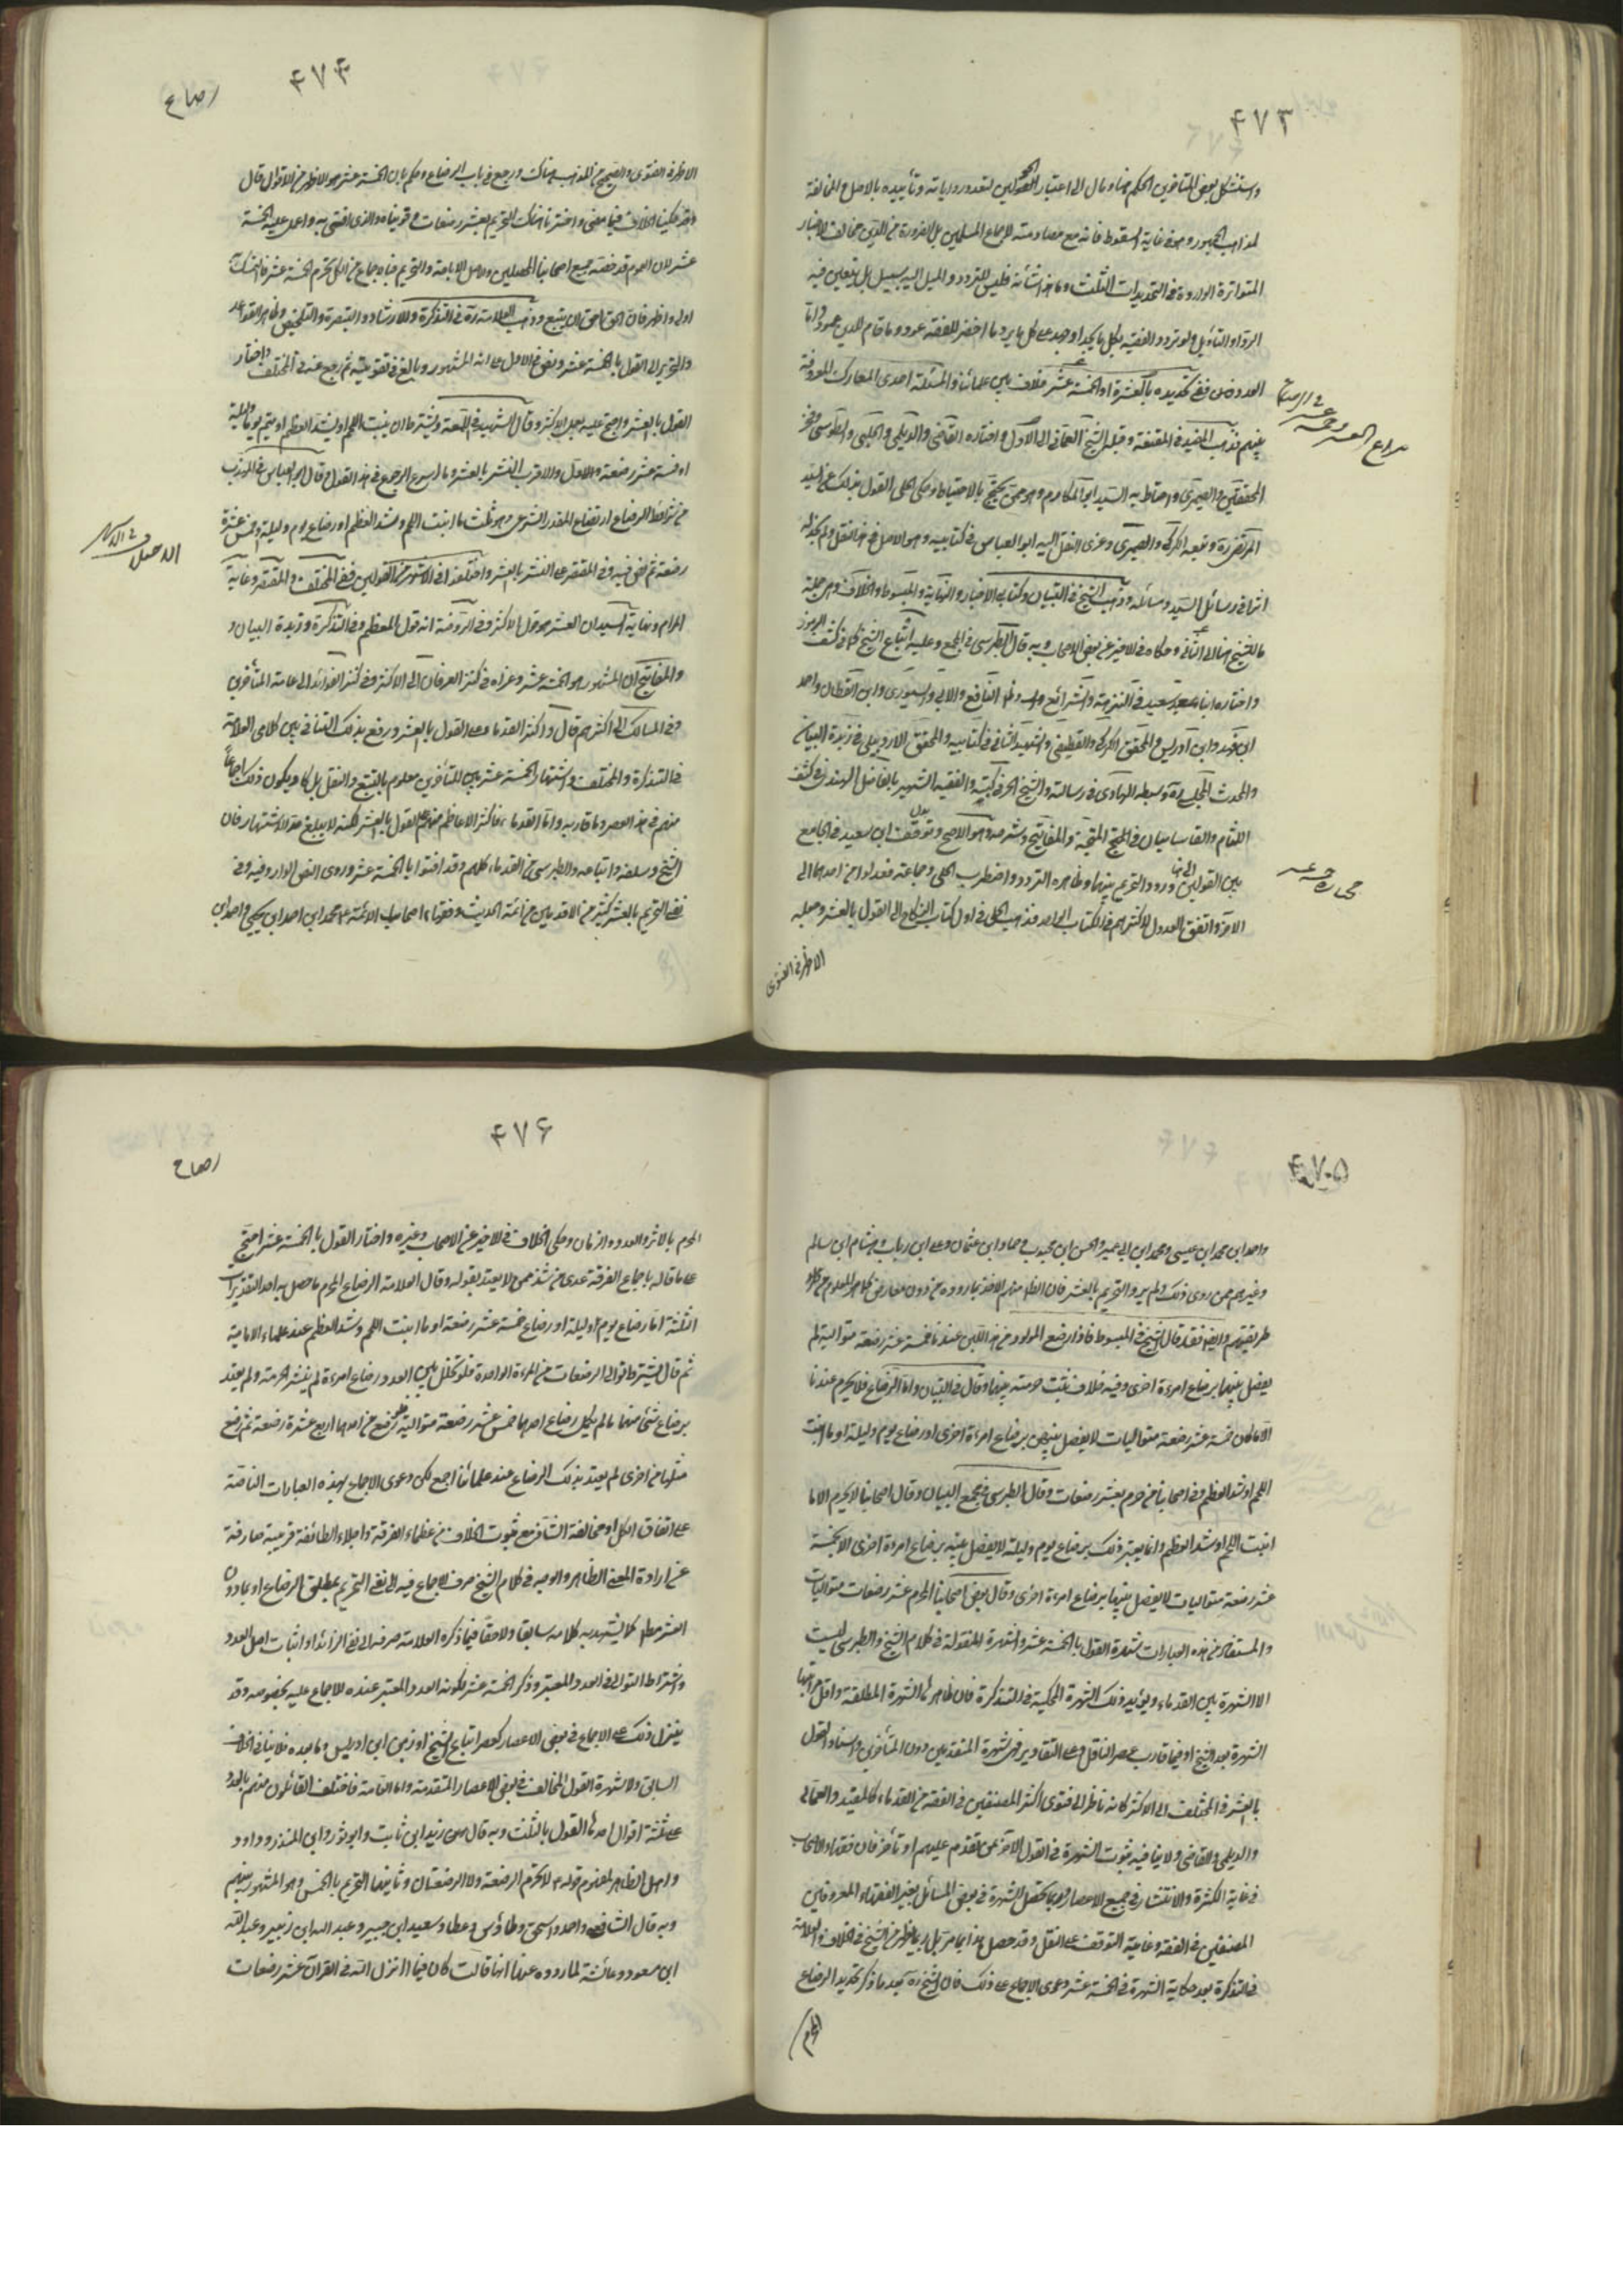 ۴۷۳
واستشكل بعض المتأخرين الحكم هنا ومال الى اعتبار الحولين لتعدد رواياته وتأييده بالاصل والمخالفة
لمذاهب الجمهور وهو في غاية السقوط فانه مع مصادمته لاجماع المسلمين بل الضرورة من الدين مخالف للاخبار
المتواترة الواردة في التحديدات الثلث وما هذا شأنه فليس للتردد والميل اليه سبيل بل يتعين فيه
الرد او التأويل ولو تردد الفقيه بكل ما يجد او جمد على كل ما يرد ما اخضر للفقه عود وما قام للدين عمود واما
العدد ففي تحديده بالعشرة او الخمسة عشر خلاف بين علمائنا والمسئلة احدى المعارك المعروفة
بينهم فذهب المفيد في المقنعة وقبله الشيخ العماني الى الاول واختاره القاضي والديلمي والحلبي والطوسي وفخر
المحققين والصيمري واحتاط به السيد ابو المكارم وهو ممن يحتج بالاحتياط وحكى الحلي القول بذلك عن السيد
المرتضى ره وتبعه الكركي والصيمري وعزى النقل اليه ابو العباس في كتابيه وهو الاصل في هذا النقل ولم نجد له
اثرا في رسائل السيد ومسائله وذهب الشيخ في التبيان وكتابي الاخبار والنهاية والمبسوط والخلاف وهو جملة
ما للشيخ هنا الى الثاني وحكاه في الاخير عن بعض الاصحاب وبه قال الطبرسي في المجمع وعليه اتباع الشيخ كما في كشف الرموز
واختاره ابنا سعيد في النزهة والشرائع والنافع والآبي والسيوري وابن القطان واحمد
ابن فهد وابن ادريس والمحقق الكركي والقطيفي والشهيد الثاني في كتابيه والمحقق الاردبيلي في زبدة البيان
والمحدث المجلسي ره وسبطه الهادي في رسالته والشيخ الحر في كتبه والفقيه الشهير بالفاضل الهندي في كشف
اللثام والقاسانيان في المهج المنتهجة والمفاتيح وشرحه وهو الاصح وتوقف ابن سعيد في الجامع
بين القولين ورود التحريم بينهما وظاهره التردد واضطرب الحلي وجماعة فعدلوا من احدهما الى
الآخر واتفق العدول لاكثرهم في الكتاب الواحد فذهب الحلي في اول كتاب النكاح الى القول بالعشر وجعله
الاظهر في الفتوى
۴۷۴
رضاع
الاظهر في الفتوى والصحيح من المذهب هناك ورجع في باب الرضاع وحكم بان الخمسة عشر هو الاظهر من الاقوال قال
وقد حكينا الخلاف فيما مضى واخترنا هناك التحريم بعشر رضعات وقويناه والذي افتي به واعمل عليه الخمسة
عشر لان العموم قد خصه جميع اصحابنا المحصلين والاصل الاباحة والتحريم فبالاجماع من الكل يحرم الخمسة عشر فالتمسك به
اولى واظهر فان الحق احق ان يتبع وذهب العلامة ره في التذكرة والارشاد والتبصرة والتلخيص وظاهر القواعد
والتحرير الى القول بالخمسة عشر ونص في الاصل على انه المشهور وبالغ في تقويته ثم رجع عنه في المختلف واختار
القول بالعشر واحتج عليه وجعله للاكثر وقال الشهيد في اللمعة ويشترط ان ينبت اللحم او يشتد العظم او يتم يوما وليلة
او خمسة عشر رضعة والاقرب النشر بالعشر وما اسرع الرجوع في هذا القول وقال ابو العباس في المهذب
من شرائط الرضاع ارتفاع المقدر الشرعي وهو ثلث ما انبت اللحم وشد العظم او رضاع يوم وليلة وخمس عشرة
رضعة ثم نص فيه وفي المقتصر على النشر بالعشر واختلفوا في الاشهر من القولين ففي المختلف والمقتصر وغاية
المرام ونهاية السيد ان العشر هو قول الاكثر وفي الروضة انه قول المعظم وفي التذكرة وزبدة البيان و
والمفاتيح ان المشهور هو الخمسة عشر وعزاه في كنز العرفان الى الاكثر وفي كنز الفوائد الى عامة المتأخرين
وفي المسالك الى اكثرهم قال واكثر القدماء على القول بالعشر ورفع بذلك التنافي بين كلامي العلامة
في التذكرة والمختلف واشتهار الخمسة عشر بين المتأخرين معلوم بالتتبع والنقل بل كاد يكون ذلك اجماعا
منهم في هذا العصر وما قاربه واما القدماء فاكثر الاعاظم منهم على القول بالعشر لكنه لا يبلغ حد الاشتهار فان
الشيخ وسلفه واتباعه والطبرسي من القدماء كلهم وقد افتوا بالخمسة عشر وروى النص الوارد فيه وفي
نفي التحريم بالعشر كثير من الاقدمين من ائمة الحديث وفقهاء اصحاب الائمة ع محمد ابن احمد ابن يحيى واحمد ابن
۴۷۵
واحمد ابن محمد ابن عيسى ومحمد ابن ابي عمير والحسن ابن محبوب وحماد ابن عثمان وعلي ابن رياب وهشام ابن سالم
وغيرهم ممن روى ذلك ولم يرو التحريم بالعشر فان الظاهر منهم الاخذ بما رووه من دون معارض كما هو المعلوم من
طريقتهم وايضا فقد قال الشيخ في المبسوط فاذا رضع المولود من هذا اللبن عندنا خمسة عشر رضعة متوالية لم
يفصل بينها برضاع امرءة اخرى وفيه خلاف ثبت حرمته بينهما وقال في التبيان واما الرضاع فلا يحرم عندنا
الا ما كان خمسة عشر رضعة متواليات لا يفصل بينهن برضاع امرءة اخرى او رضاع يوم وليلة او ما انبت
اللحم او شد العظم وفي اصحابنا من حرم بعشر رضعات وقال الطبرسي في مجمع البيان وقال اصحابنا لا يحرم الا ما
انبت اللحم او شد العظم وانما يعتبر ذلك برضاع يوم وليلة لا يفصل بينه برضاع امرءة اخرى الا بخمسة
عشر رضعة متواليات لا يفصل بينها برضاع امرءة اخرى وقال بعض اصحابنا المحرم عشر رضعات متواليات
والمستفاد من هذه العبارات شهرة القول بالخمسة عشر والشهرة المنقولة في كلام الشيخ والطبرسي ليست
الا الشهرة بين القدماء ويؤيد ذلك الشهرة المحكية في التذكرة فان ظاهرها الشهرة المطلقة واقل مراتبها
الشهرة بعد الشيخ او فيما قارب عصر الناقل وعلى التقادير فهي شهرة المتقدمين دون المتأخرين واسناد القول
بالعشر في المختلف الى الاكثر كانه ناظر الى فتوى اكثر المصنفين في الفقه من القدماء كالمفيد والعماني
والديلمي والقاضي ولا ينافيه ثبوت الشهرة في القول الآخر ممن تقدم عليهم او تأخر فان فقهاء الاصحاب
في غاية الكثرة والانتشار في جميع الاعصار وربما تحصل الشهرة في بعض المسائل بغير الفقهاء المعروفين
المصنفين في الفقه وغايته التوقف على النقل وقد حصل هذا بما مر بل ربما يظهر من الشيخ في الخلاف والعلامة
في التذكرة بعد حكاية الشهرة في الخمسة عشر دعوى الاجماع على ذلك فان الشيخ ره بعد ما ذكر تحديد الرضاع
المحرم
۴۷۶
رضاع
المحرم بالاثر والعدد والزمان وحكى الخلاف في الاخير عن الاصحاب وغيره واختار القول بالخمسة عشر احتج
على ما قاله باجماع الفرقة عدى من شذ ممن لا يعتد بقوله وقال العلامة الرضاع المحرم ما حصل به احد التقديرات
الثلثة اما رضاع يوم او ليلة او رضاع خمسة عشر رضعة او ما انبت اللحم وشد العظم عند علماء الامامية
ثم قال يشترط توالي الرضعات من المرءة الواحدة فلو تخلل بين العدد رضاع امرءة لم ينشر الحرمة ولم يعتد
برضاع شئ منهما ما لم يكمل رضاع احدهما خمس عشر رضعة متوالية فلو رضع من احدهما اربع عشرة رضعة ثم رضع
مثلها من اخرى لم يعتد بذلك الرضاع عند علمائنا اجمع لكن دعوى الاجماع بهذه العبارات الناصة
على اتفاق الكل او مخالفة الشاذ مع ثبوت الخلاف من عظماء الفرقة واجلاء الطائفة قرينة صارفة
عن ارادة المعنى الظاهر والوجه في كلام الشيخ صرف الاجماع فيه الى نفي التحريم بمطلق الرضاع او بما دون
العشر مطلقا كما يشهد به كلامه سابقا ولاحقا وفيما ذكره العلامة صرفه الى نفي الزائد او اثبات اصل العدد
واشتراط التوالي في العدد المعتبر وذكر الخمسة عشر لكونه العدد المعتبر عنده للاجماع عليه بخصوصه وقد
ينزل ذلك على الاجماع في بعض الاعصار كعصر اتباع الشيخ او زمن ابن ادريس وما بعده فلا ينافي الخلاف
السابق ولا شهرة القول المخالف في بعض الاعصار المتقدمة واما العامة فاختلف القائلون منهم بالعدد
على ثلثة اقوال احدها القول بالثلث وبه قال زيد ابن ثابت وابو ثور وابن المنذر وداود
واهل الظاهر لمفهوم قوله ع لا تحرم الرضعة ولا الرضعتان وثانيها التحريم بالخمس وهو المشهور بينهم
وبه قال الشافعي واحمد واسحق وطاؤس وعطا وسعيد ابن جبير وعبد الله ابن زبير وعبد الله
ابن مسعود وعائشة لما رووه عنها انها قالت كان فيما انزل الله في القرآن عشر رضعات